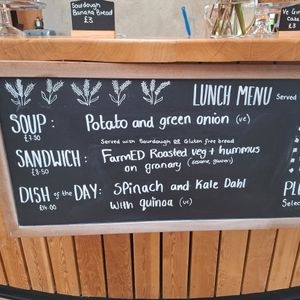 Sourdough
Banana Bread
£3
Ve Gin
cake
£3
LUNCH MENU
Served
SOUP: Potato and green onion (ve)
£7.50
Served with Sourdough OR Gluten free bread
SANDWICH: FarmED Roasted veg + hummus
£8.50
on granary (sesame, gluten)
DISH of the DAY: Spinach and Kale Dahl
£14.00
with quinoa (ve)